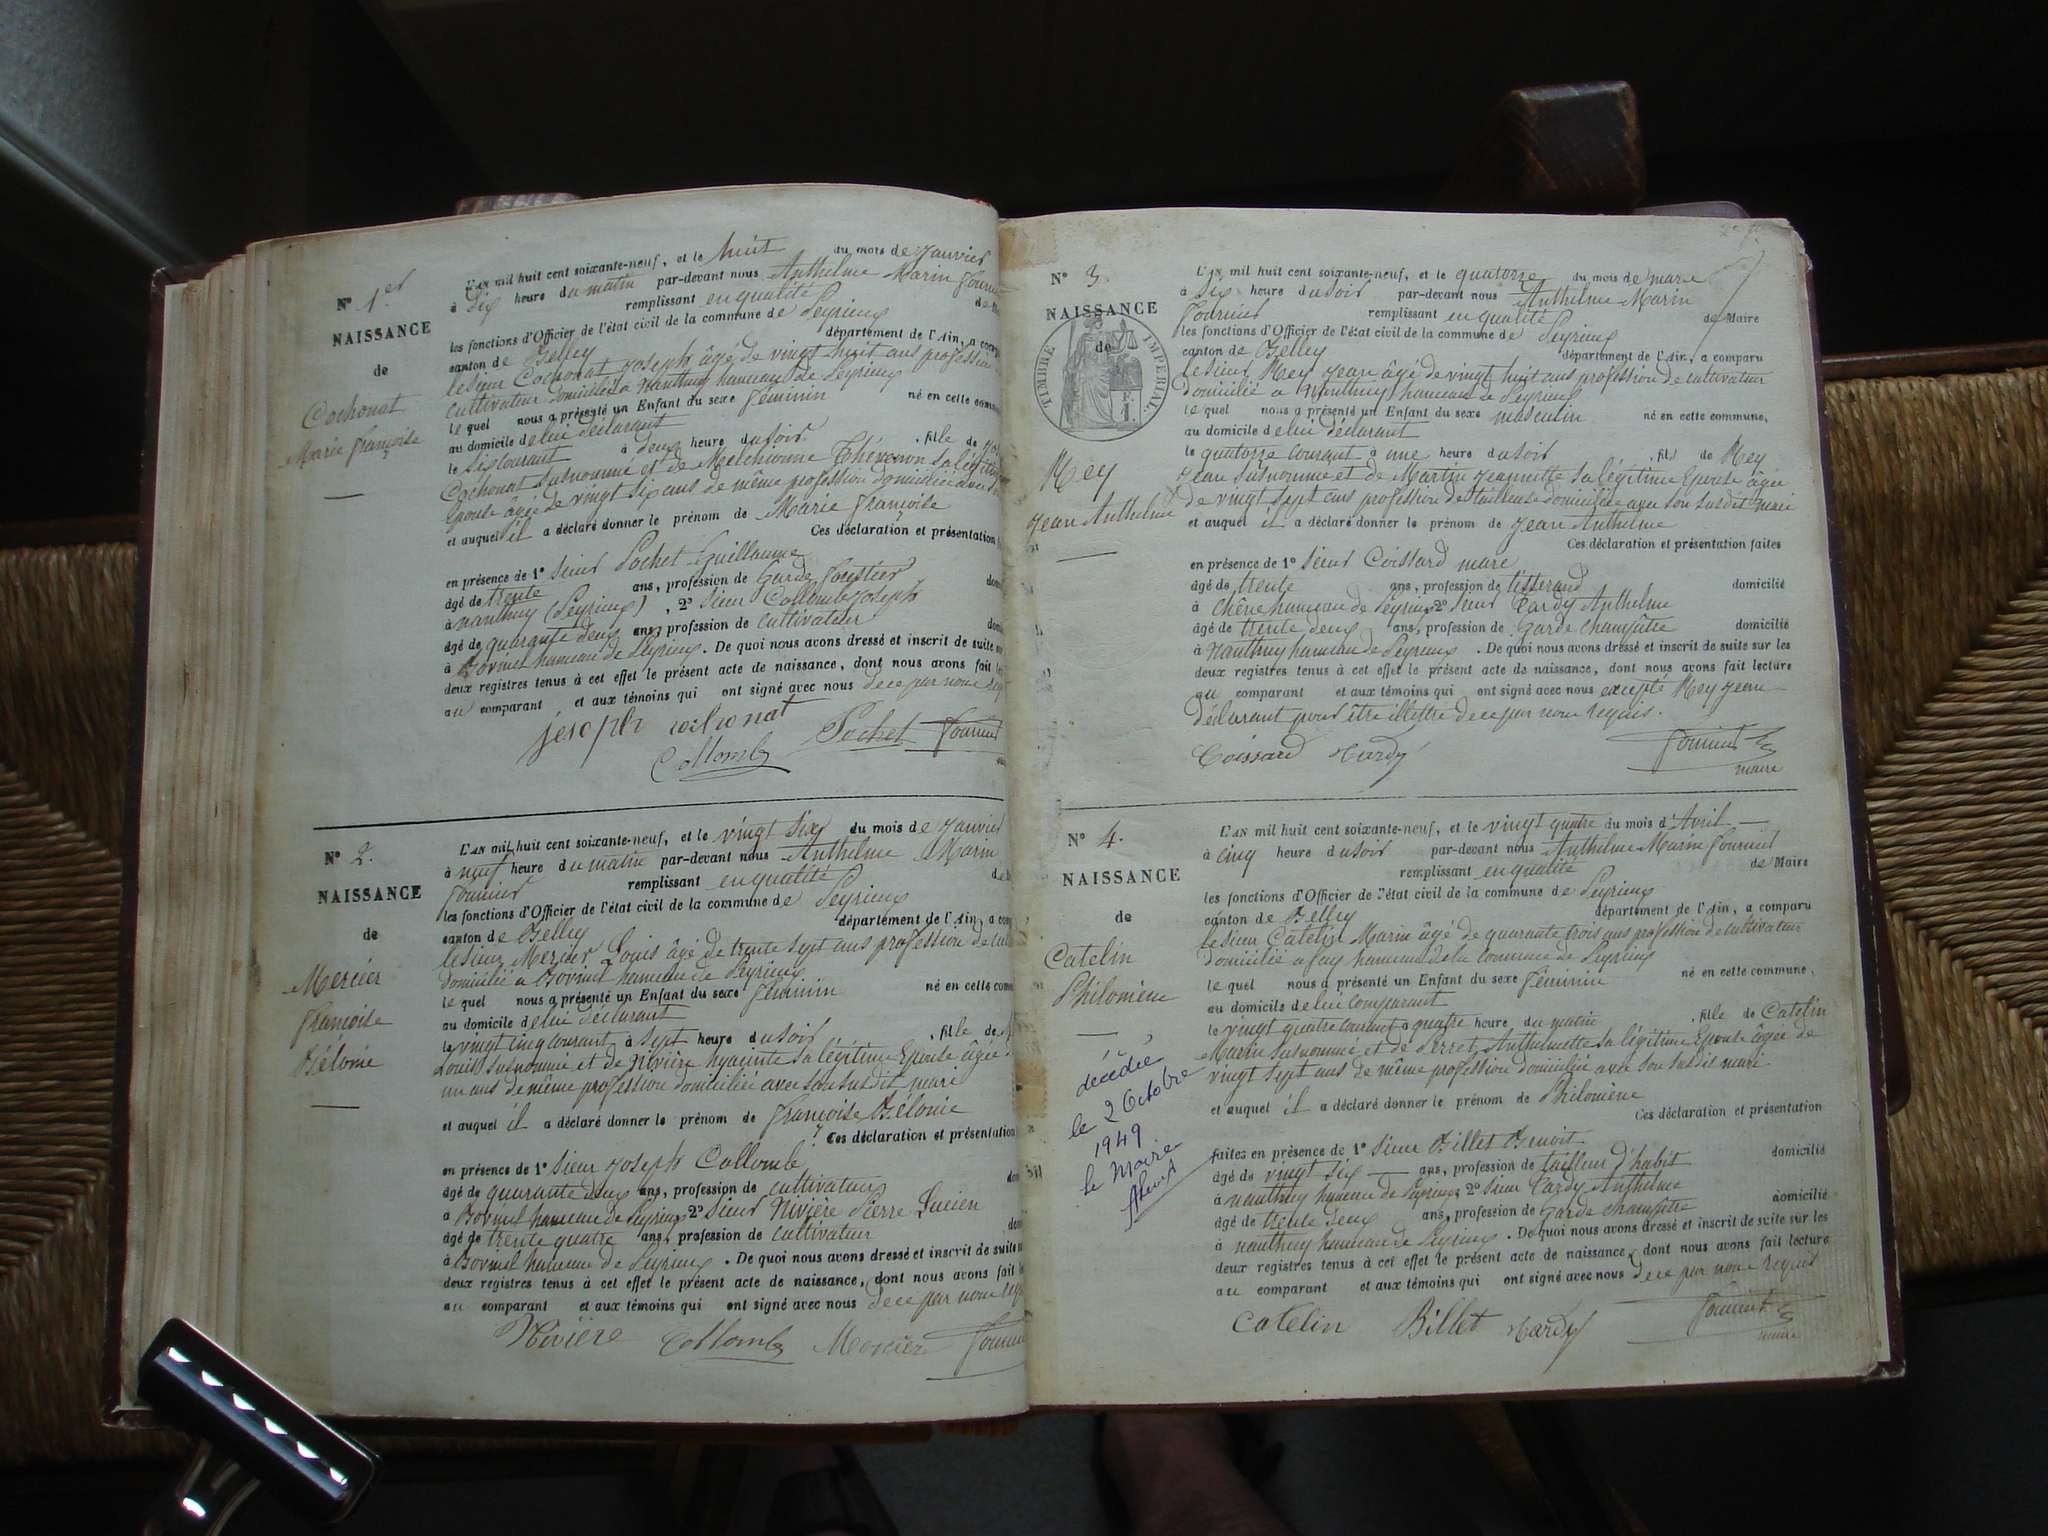 N° 1er
NAISSANCE
de
Cochonat
Marie françoise
L'AN mil huit cent soixante-neuf, et le huit du mois de Janvier
à six heure du matin par-devant nous Anthelme Marin
remplissant en qualité
les fonctions d'Officier de l'état civil de la commune de Peyrieux
canton de Belley département de l'Ain, a
le sieur Cochonat Joseph âgé de vingt huit ans profession
cultivateur domicilié à nanthuy hameau de Peyrieux
le quel nous a présenté un Enfant du sexe féminin né en cette
au domicile de lui déclarant
le six courant à deux heure du soir fille de
Cochonat susnommé et de Melchionne Thévenon sa
Epouse âgée de vingt six ans de même profession domiciliée avec
et auquel il a déclaré donner le prénom de Marie françoise
Ces déclaration et présentation
en présence de 1° sieur Pochet Guillaume
âgé de trente ans, profession de Garde forestier
à nanthuy (Peyrieux), 2° sieur Collomb Joseph
âgé de quarante deux ans, profession de cultivateur
à Bovinel hameau de Peyrieux. De quoi nous avons dressé et inscrit de suite sur
deux registres tenus à cet effet le présent acte de naissance, dont nous avons fait
au comparant et aux témoins qui ont signé avec nous de ce par nous
joseph cochonat
Collomb Pochet Fournier
N° 2.
NAISSANCE
de
Mercier
françoise
Bélonie
L'AN mil huit cent soixante-neuf, et le vingt six du mois de Janvier
à neuf heure du matin par-devant nous Anthelme Marin
fournier remplissant en qualité
les fonctions d'Officier de l'état civil de la commune de Peyrieux
canton de Belley département de l'Ain, a
le sieur Mercier Louis âgé de trente sept ans profession de
domicilié à Bovinel hameau de Peyrieux
le quel nous a présenté un Enfant du sexe féminin né en cette
au domicile de lui déclarant
le vingt cinq courant à sept heure du soir fille de
Louis susnommé et de Nivière hyacinte sa légitime Epouse âgée
un ans de même profession domiciliée avec son susdit mari
et auquel il a déclaré donner le prénom de françoise Bélonie
Ces déclaration et présentation
en présence de 1° sieur Joseph Collomb
âgé de quarante deux ans, profession de cultivateur
à Bovinel hameau de Peyrieux 2° sieur Nivière Pierre Lucien
âgé de trente quatre ans, profession de cultivateur
à Bovinel hameau de Peyrieux. De quoi nous avons dressé et inscrit de suite
deux registres tenus à cet effet le présent acte de naissance, dont nous avons fait
au comparant et aux témoins qui ont signé avec nous de ce par nous
Nivière Collomb Mercier
N° 3.
NAISSANCE
de
TIMBRE IMPÉRIAL
Mey
Jean Anthelme
L'AN mil huit cent soixante-neuf, et le quatorze du mois de mars
à six heure du soir par-devant nous Anthelme Marin
fournier remplissant en qualité de Maire
les fonctions d'Officier de l'état civil de la commune de Peyrieux
canton de Belley département de l'Ain, a comparu
le sieur Mey Jean âgé de vingt huit ans profession de cultivateur
domicilié à Nanthuy hameau de Peyrieux
le quel nous a présenté un Enfant du sexe masculin né en cette commune,
au domicile de lui déclarant
le quatorze courant à une heure du soir fils de Mey
Jean susnommé et de Martin Jeannette sa légitime Epouse âgée
de vingt sept ans profession de tailleuse domiciliée avec son susdit mari
et auquel il a déclaré donner le prénom de Jean Anthelme
Ces déclaration et présentation faites
en présence de 1° sieur Coissard marc
âgé de trente ans, profession de tisserand domicilié
à chêne hameau de Peyrieux 2° sieur Tardy Anthelme
âgé de trente deux ans, profession de Garde champêtre domicilié
à Nanthuy hameau de Peyrieux. De quoi nous avons dressé et inscrit de suite sur les
deux registres tenus à cet effet le présent acte de naissance, dont nous avons fait lecture
au comparant et aux témoins qui ont signé avec nous excepté Mey Jean
déclarant pour être illettré de ce par nous requis.
Coissard Tardy Fournier
maire
N° 4.
NAISSANCE
de
Catelin
Philomène
décédée
le 2 Octobre
1949
le Maire
L'AN mil huit cent soixante-neuf, et le vingt quatre du mois d'Avril
à cinq heure du soir par-devant nous Anthelme Marin fournier
remplissant en qualité de Maire
les fonctions d'Officier de l'état civil de la commune de Peyrieux
canton de Belley département de l'Ain, a comparu
le sieur Catelin Marin âgé de quarante trois ans profession de cultivateur
domicilié à fay hameau de la commune de Peyrieux
le quel nous a présenté un Enfant du sexe féminin né en cette commune,
au domicile de lui comparant
le vingt quatre courant à quatre heure du matin fille de Catelin
Marin susnommé et de Perret Anthelmette sa légitime Epouse âgée de
vingt sept ans de même profession domiciliée avec son susdit mari
et auquel il a déclaré donner le prénom de Philomène
Ces déclaration et présentation
faites en présence de 1° sieur Billet Benoit
âgé de vingt six ans, profession de tailleur d'habit domicilié
à nanthuy hameau de Peyrieux 2° sieur Tardy Anthelme
âgé de trente deux ans, profession de Garde champêtre domicilié
à nanthuy hameau de Peyrieux. De quoi nous avons dressé et inscrit de suite sur les
deux registres tenus à cet effet le présent acte de naissance, dont nous avons fait lecture
au comparant et aux témoins qui ont signé avec nous de ce par nous requis
Catelin Billet Tardy Fournier
maire